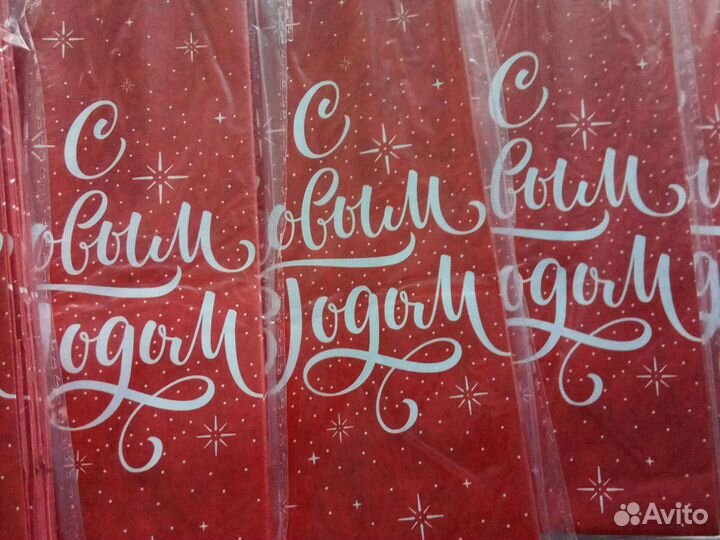 С
овым
одом
С
овым
Годом
С
овым
одом
Avito